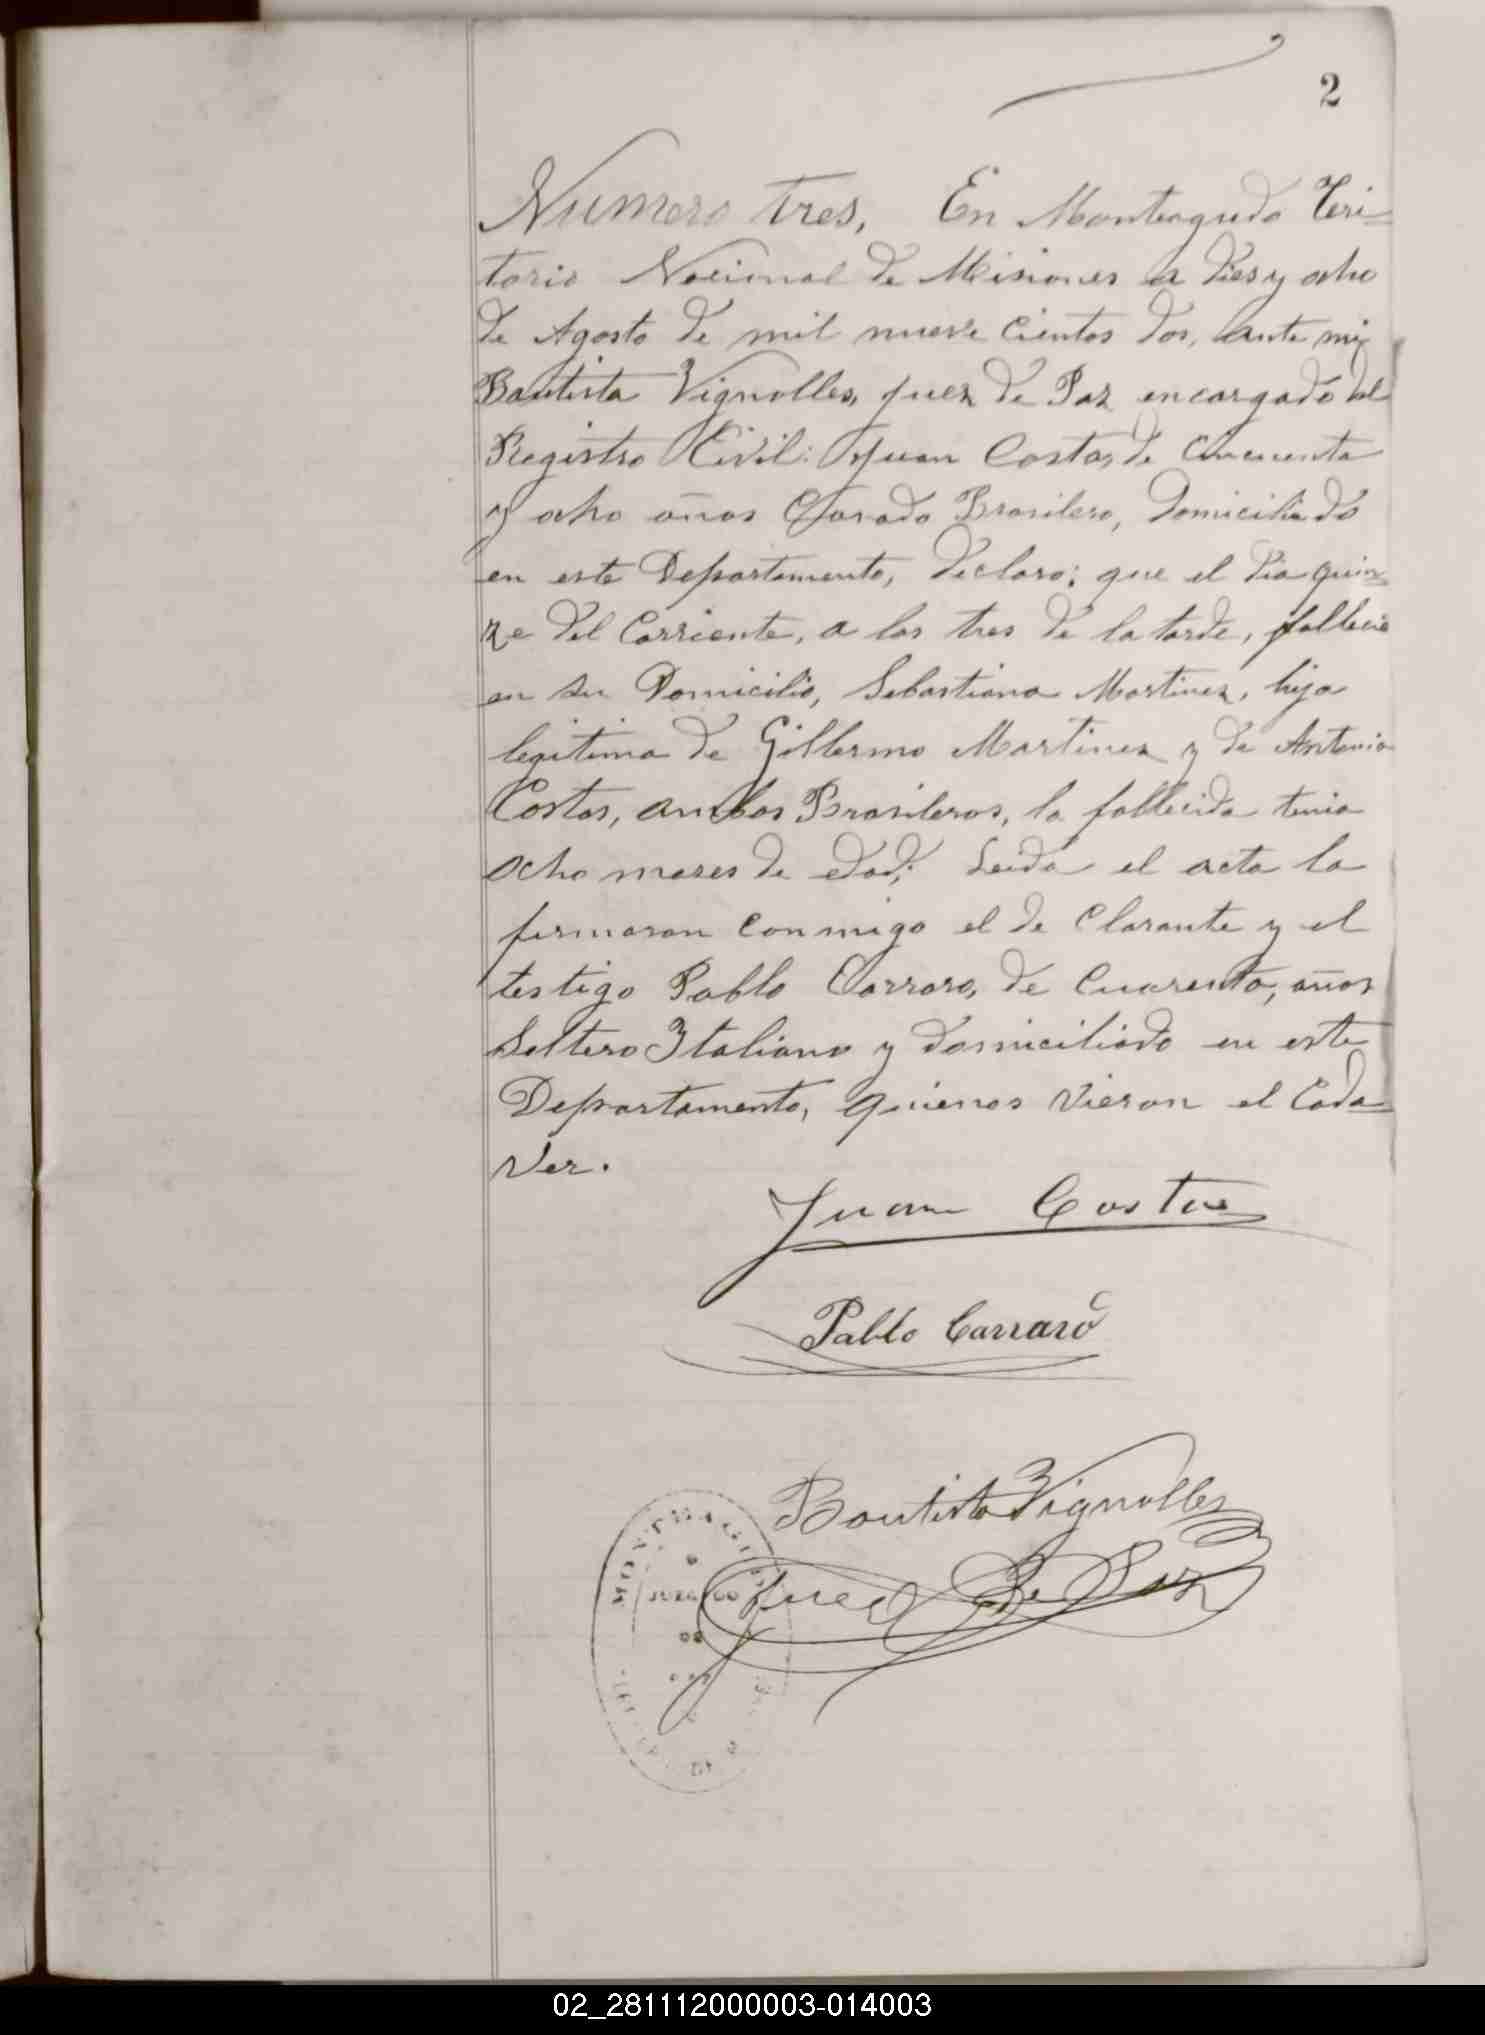 2
Numero tres, En Monteagudo Teri-
torio Nacional de Misiones a dies y ocho
de Agosto de mil nueve cientos dos, ante mi
Bautista Vignolles, juez de Paz encargado del
Registro Civil: Juan Costas, de cincuenta
y ocho años Casado Brasilero, domiciliado
en este Departamento, declaro; que el dia quin-
ze del Corriente, a las tres de la tarde, fallecio
en su Domicilio, Sebastiana Martinez, hija
legitima de Gillermo Martinez y de Antonia
Costas, ambos Brasileros, la fallecida tenia
ocho meses de edad; Leida el acta la
firmaron conmigo el de Clarante y el
testigo Pablo Carraro, de Cuarenta, años
Soltero Italiano y domiciliado en este
Departamento, quienes vieron el Cada-
ver.
Juan Costas
Pablo Carraro
Bautista Vignolles
Juez de Paz
JUZGADO
DE
02_281112000003-014003